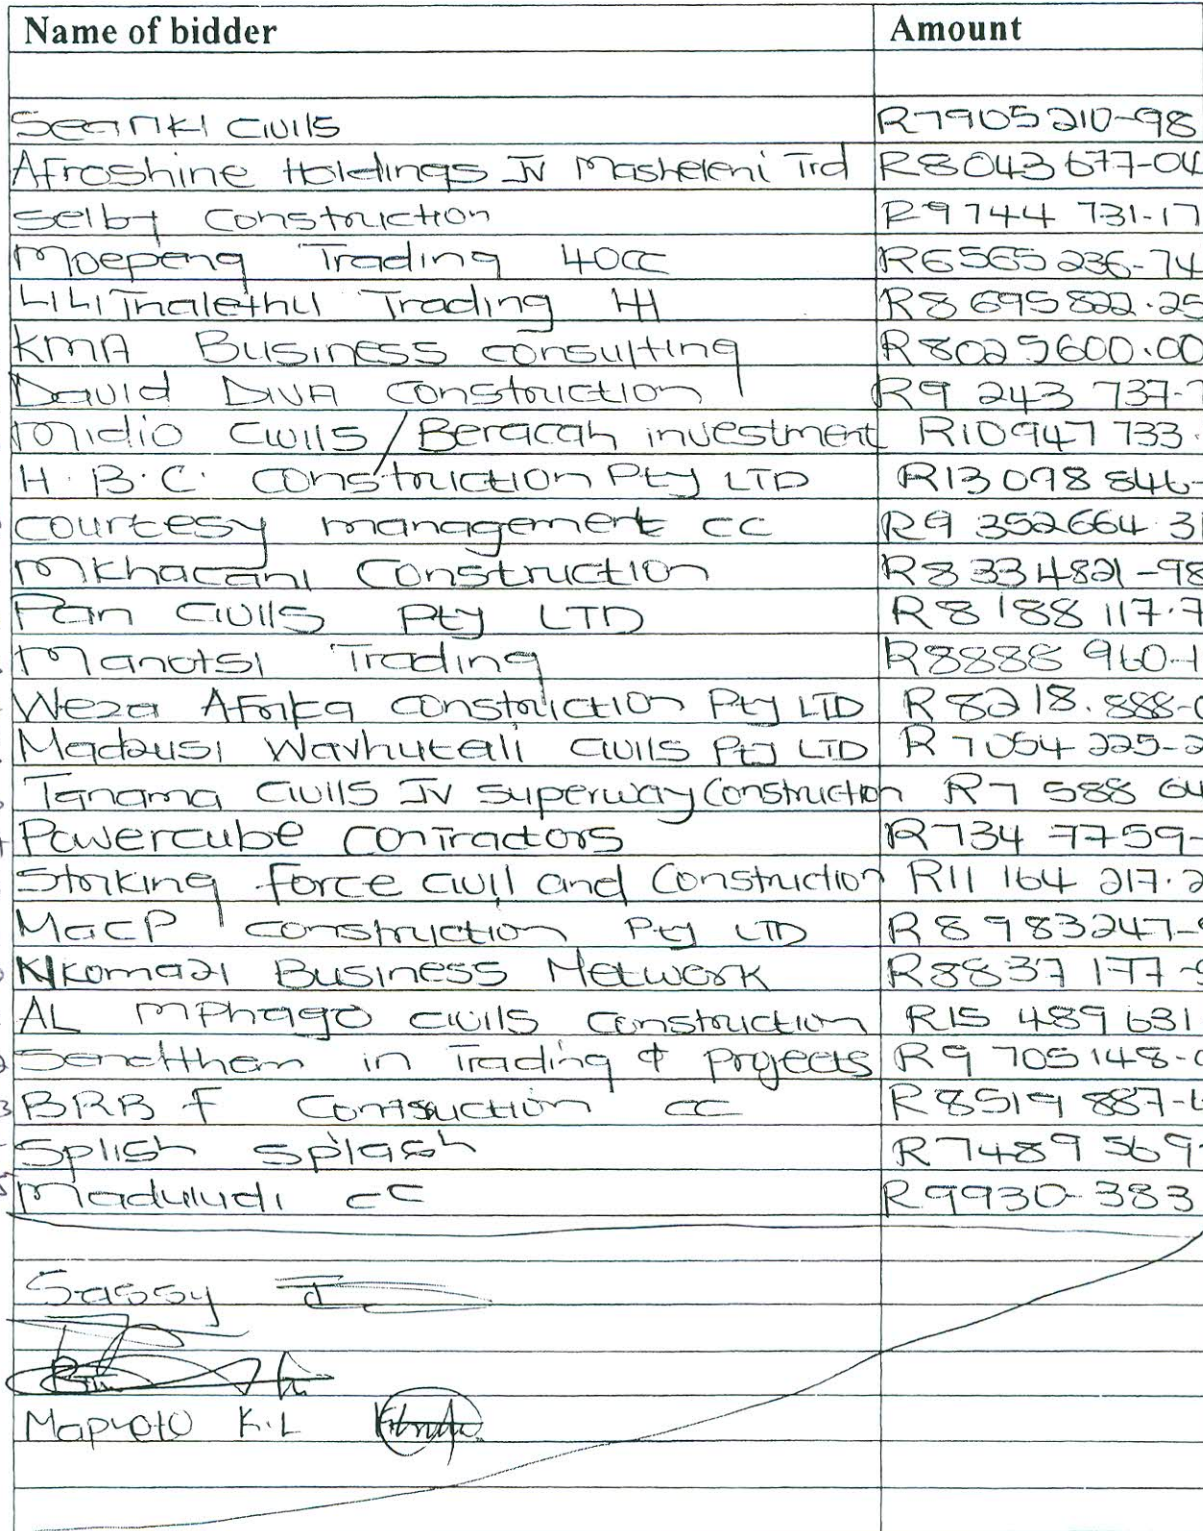 Name of bidder Amount
Seanki Civils R7905210-98
Afroshine Holdings JV Masheleni Trd R8043677-04
Selby Construction R9744 731-17
Moepeng Trading 40cc R6565236-74
LiLiThalethu Trading HH R8 695822.25
KMA Business consulting R8025600.00
David DIVA Construction R9 243 737-
Midio Civils / Beracah investment R10947 733.
H.B.C. Construction Pty LTD R13 098 846-
Courtesy management cc R9 352664 31
Mkhacani Construction R8 334821-98
Pan Civils Pty LTD R8 188 117.7
Manotsi Trading R8888 960-1
Weza Afrika Construction Pty LTD R 8218.888-0
Madzusi Wavhutali Civils Pty LTD R 7054 225-2
Tanama Civils JV Superway Construction R7 588 64
Powercube Contractors R734 7759-
Striking force civil and Construction R11 164 217.2
MacP Construction Pty LTD R8983247-9
Nkomazi Business Network R8837 177-9
AL Mphago Civils Construction R15 489 631
Sendthem in Trading & Projects R9 705148-0
3 BRB F Contsuction cc R8519 887-6
Splish Splash R7489 569-
5 Maduludi cc R9930-383
Sassy
Mapyoto K.L